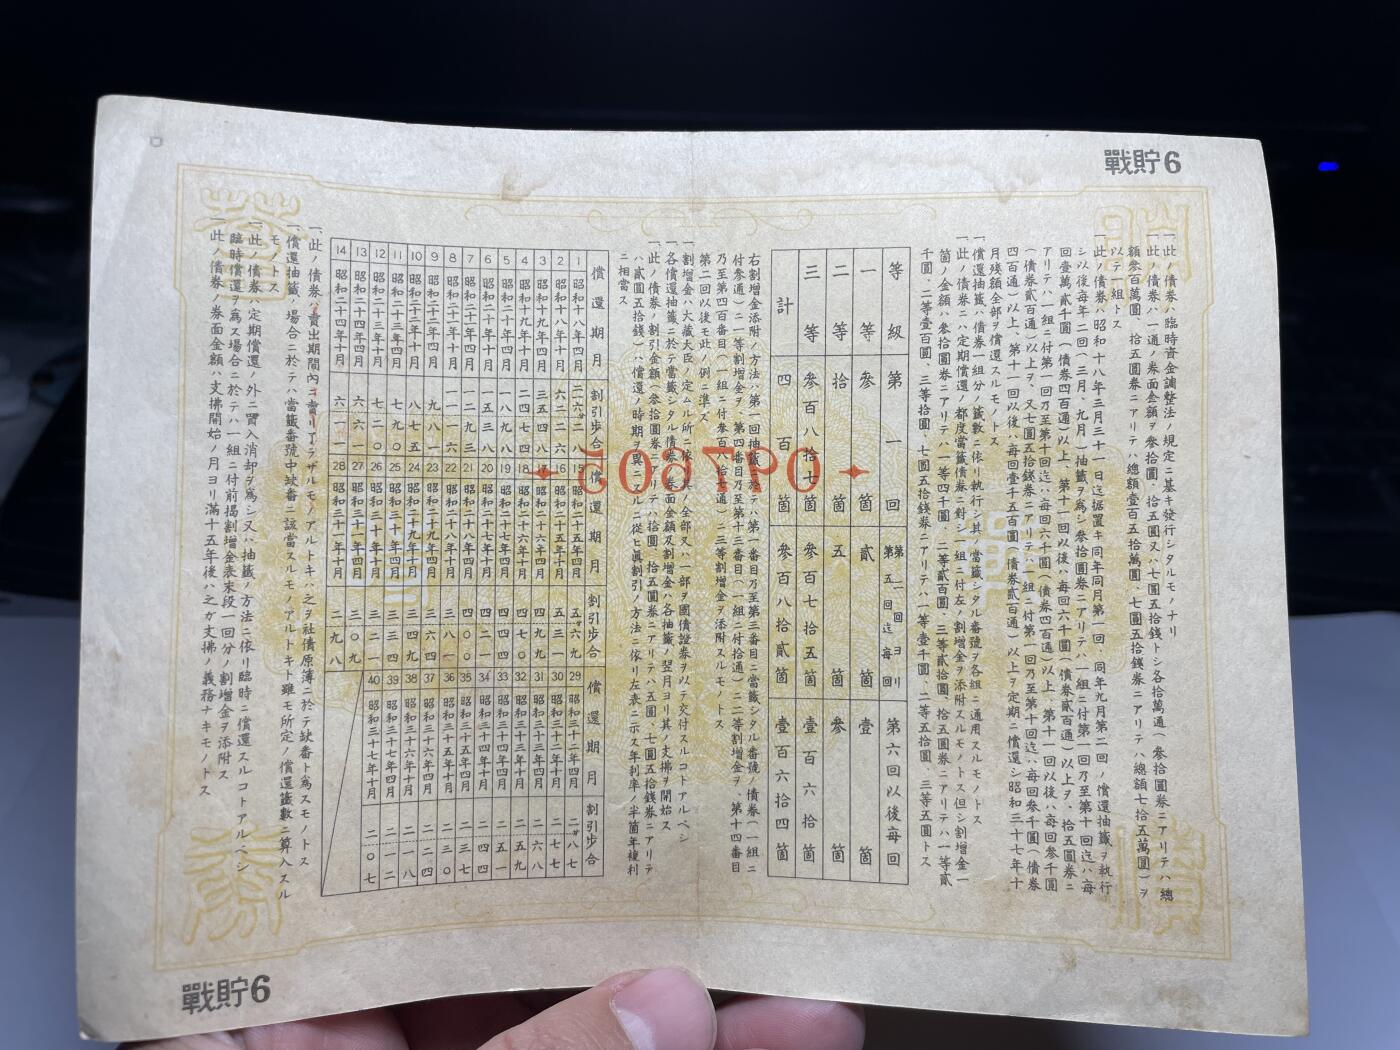 戰貯6
一此ノ債券ハ臨時資金調整法ノ規定ニ基キ發行シタルモノナリ
一此ノ債券ハ一通ノ券面金額ヲ參拾圓、拾五圓又ハ七圓五拾錢トシ各拾萬通(參拾圓券ニアリテハ總
額參百萬圓、拾五圓券ニアリテハ總額壹百五拾萬圓、七圓五拾錢券ニアリテハ總額七拾五萬圓)ヲ
以テ一組トス
一此ノ債券ハ昭和十八年三月三十一日迄据置キ同年同月第一回、同年九月第二回ノ償還抽籤ヲ執行
シ以後每年二回(三月、九月)抽籤ヲ爲シ參拾圓券ニアリテハ一組ニ付第一回乃至第十回迄ハ每
回壹萬貳千圓(債券四百通)以上、第十一回以後ハ每回六千圓(債券貳百通)以上ヲ、拾五圓券ニ
アリテハ一組ニ付第一回乃至第十回迄ハ每回六千圓(債券四百通)以上、第十一回以後ハ每回參千圓
(債券貳百通)以上ヲ、又七圓五拾錢券ニアリテハ一組ニ付第一回乃至第十回迄ハ每回參千圓(債券
四百通)以上、第十一回以後ハ每回壹千五百圓(債券貳百通)以上ヲ定期ニ償還シ昭和三十七年十
月殘額全部ヲ償還スルモノトス
一償還抽籤ハ債券一組分ノ籤數ニ依リ執行シ其ノ當籤シタル番號ヲ各組ニ通用スルモノトス
一此ノ債券ニハ定期償還ノ都度當籤債券ニ對シ一組ニ付左ノ割增金ヲ添附スルモノトス但シ割增金一
箇ノ金額ハ參拾圓券ニアリテハ一等四千圓、二等貳百圓、三等貳拾圓、拾五圓券ニアリテハ一等貳
千圓、二等壹百圓、三等拾圓、七圓五拾錢券ニアリテハ一等壹千圓、二等五拾圓、三等五圓トス
等級 第一回 第二回ヨリ第五回迄每回 第六回以後每回
一等 參箇 貳箇 壹箇
二等 拾箇 五箇 參箇
三等 參百八拾七箇 參百七拾五箇 壹百六拾箇
計 四百箇 參百八拾貳箇 壹百六拾四箇
右割增金添附ノ方法ハ第一回抽籤ニ於テハ第一番目乃至第三番目ニ當籤シタル番號ノ債券(一組ニ
付參通)ニ一等割增金ヲ、第四番目乃至第十三番目(一組ニ付拾通)ニ二等割增金ヲ、第十四番目
乃至第四百番目(一組ニ付參百八拾七通)ニ三等割增金ヲ添附スルモノトス
第二回以後モ此ノ例ニ準ズ
一割增金ハ大藏大臣ノ定ムル所ニ依リ其ノ全部又ハ一部ヲ國債證券ヲ以テ交付スルコトアルベシ
一各償還抽籤ニ於テ當籤シタル債券ノ券面金額及割增金ハ各抽籤ノ翌月ヨリ其ノ支拂ヲ開始ス
一此ノ債券ノ割引金額(參拾圓券ニアリテハ拾圓、拾五圓券ニアリテハ五圓、七圓五拾錢券ニアリテ
ハ貳圓五拾錢)ハ償還ノ時期ヲ異ニスルニ從ヒ眞割引ノ方法ニ依リ左表ニ示ス年利率ノ半箇年複利
ニ相當ス
償還期月 割引步合 償還期月 割引步合 償還期月 割引步合
1 昭和十八年四月 15 昭和二十五年四月 五六九 29 昭和三十二年四月 二八七
2 昭和十八年十月 六二六 16 昭和二十五年十月 五三一 30 昭和三十二年十月 二七七
3 昭和十九年四月 三五四八 17 昭和二十六年四月 四九九 31 昭和三十三年四月 二六八
4 昭和十九年十月 二四七四 18 昭和二十六年十月 四七〇 32 昭和三十三年十月 二五九
5 昭和二十年四月 一八九九 19 昭和二十七年四月 四四四 33 昭和三十四年四月 二五一
6 昭和二十年十月 一五三八 20 昭和二十七年十月 四二一 34 昭和三十四年十月 二四四
7 昭和二十一年四月 一二九三 21 昭和二十八年四月 四〇〇 35 昭和三十五年四月 二三七
8 昭和二十一年十月 一一一六 22 昭和二十八年十月 三八一 36 昭和三十五年十月 二三〇
9 昭和二十二年四月 九八一 23 昭和二十九年四月 三六四 37 昭和三十六年四月 二二四
10 昭和二十二年十月 八七五 24 昭和二十九年十月 三四九 38 昭和三十六年十月 二一八
11 昭和二十三年四月 七九〇 25 昭和三十年四月 三三四 39 昭和三十七年四月 二一二
12 昭和二十三年十月 七二〇 26 昭和三十年十月 三二一 40 昭和三十七年十月 二〇七
13 昭和二十四年四月 六六一 27 昭和三十一年四月 三〇九
14 昭和二十四年十月 六一一 28 昭和三十一年十月 二九八
一此ノ債券ハ賣出期間內ニ賣リ了ラザルモノアルトキハ之ヲ社債原簿ニ於テ缺番ト爲スモノトス
一償還抽籤ノ場合ニ於テハ當籤番號中缺番ニ該當スルモノアルトキト雖モ所定ノ償還籤數ニ算入スル
モノトス
一此ノ債券ハ定期償還ノ外ニ買入消却ヲ爲シ又ハ抽籤ノ方法ニ依リ臨時ニ償還スルコトアルベシ
臨時償還ヲ爲ス場合ニ於テハ一組ニ付前揭割增金表末段一回分ノ割增金ヲ添附ス
一此ノ債券ノ券面金額ハ支拂開始ノ月ヨリ滿十五年後ハ之ガ支拂ノ義務ナキモノトス
戰貯6